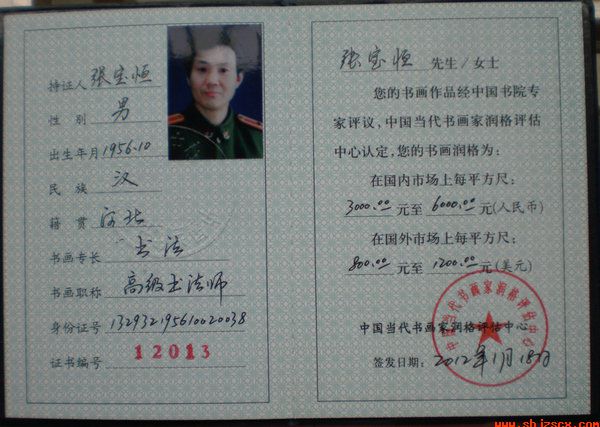 持证人 张宝恒
性别 男
出生年月 1956.10
民族 汉
籍贯 河北
书画专长 书法
书画职称 高级书法师
身份证号 132932195610020038
证书编号 12013
张宝恒 先生/女士
您的书画作品经中国书院专
家评议，中国当代书画家润格评估
中心认定，您的书画润格为：
在国内市场上每平方尺：
3000.00 元至 6000.00 元(人民币)
在国外市场上每平方尺：
800.00 元至 1200.00 元(美元)
中国当代书画家润格评估中心
中国当代书画家润格评估中心
签发日期：2012年1月18日
www.shjzscx.com